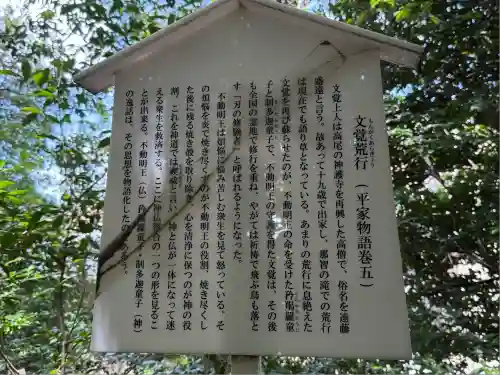 文覚荒行(平家物語巻五)
もんがくあらぎょう
文覚上人は高尾の神護寺を再興した高僧で、俗名を遠藤
盛遠と言う。故あって十九歳で出家し、那智の滝での荒行
は現在でも語り草となっている。あまりの荒行に息絶えた
文覚を再び蘇らせたのが、不動明王の命を受けた矜羯羅童
子と制多迦童子で、不動明王の守護を得た文覚は、その後
も全国の霊地で修行を重ね、やがては祈祷で飛ぶ鳥も落と
す「刃の修験者」と呼ばれるようになった。
不動明王は煩悩に悩み苦しむ衆生を見て怒っている。そ
の煩悩を炎で焼き尽くすのが不動明王の役割、焼き尽くし
た後に残る焼き殻を取り除き、心を清浄に保つのが神の役
割。これを神道では禊祓と言い、神と仏が一体になって迷
える衆生を救済する。ここに神仏習合の一つの形を見るこ
とが出来る。不動明王(仏)と矜羯羅童子・制多迦童子(神)
の逸話は、その思想を物語化したものであろう。